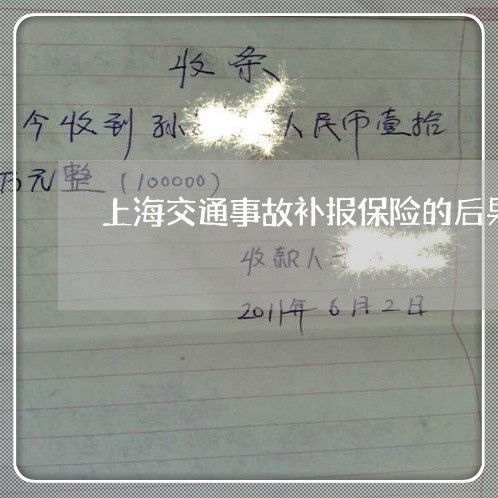 收条
今收到孙 人民币壹拾
万元整（100000）
上海交通事故补报保险的后果
收款人
2011年6月2日